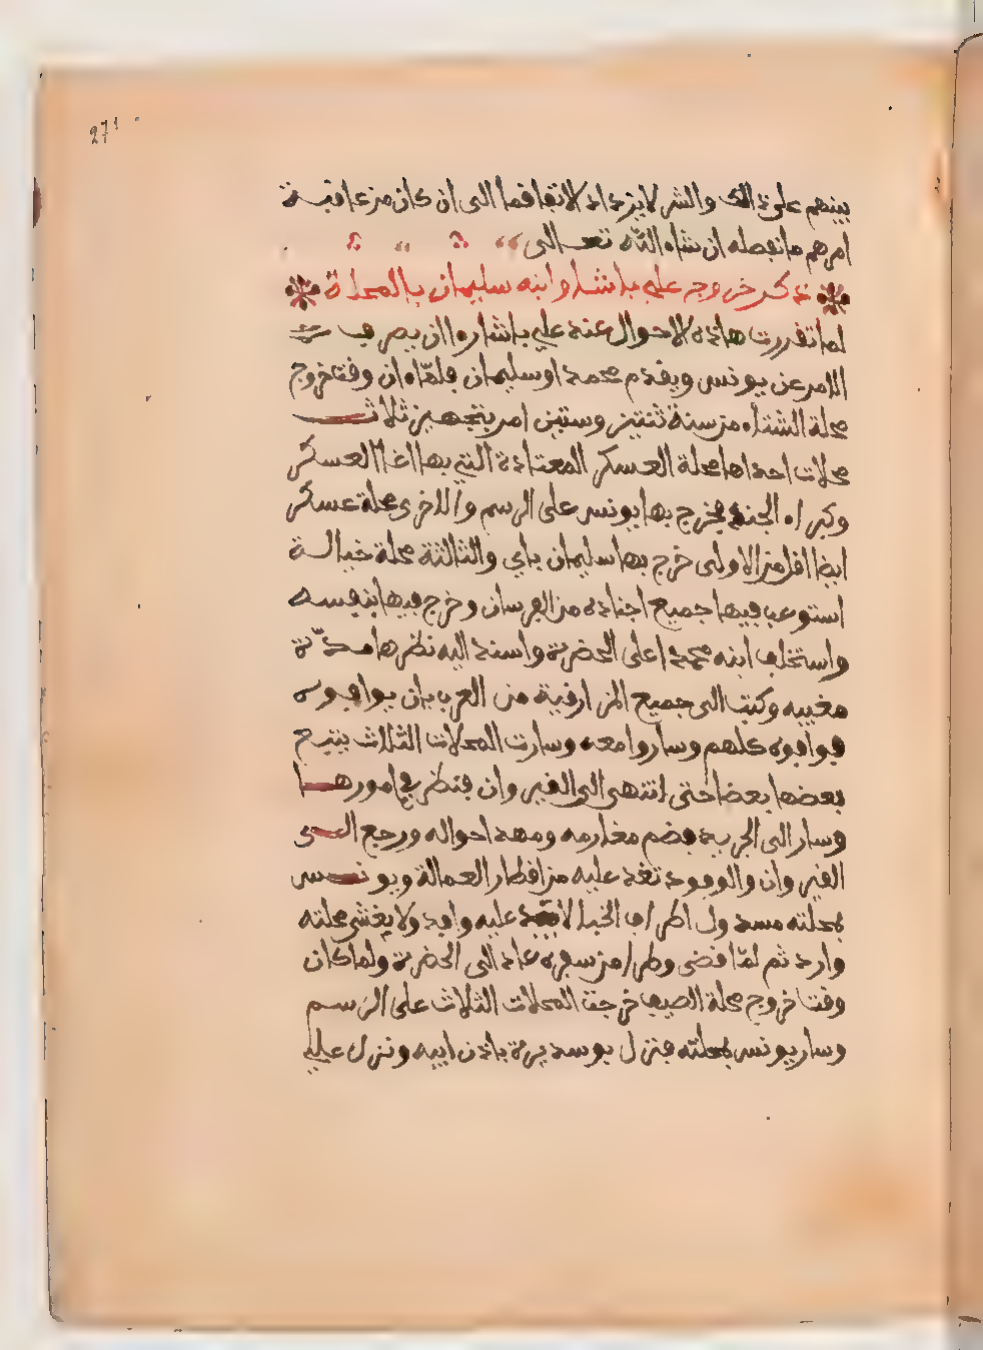 271
بينهم على ذالك والشر لا يزداد الا تفاقما الى ان كان من عاقبة
امرهم ما نفصله ان شاء الله تعالى
ذكر خروج علي باشا وابنه سليمان بالمحلة
لما تقررت هاذه الاحوال عند علي باشا راا ان يصرف
الامر عن يونس ويقدم محمد او سليمان فلما ان وقت خروج
محلة الشتاء من سنة ثنتين وستين امر بتجهيز ثلاث
محلات احداها محلة العسكر المعتادة التي بها اغا العسكر
وكبراء الجند يخرج بها يونس على الرسم والاخرى محلة عسكر
ايضا اقل من الاولى خرج بها سليمان باي والثالثة محلة خيالة
استوعب فيها جميع اجناده من الفرسان وخرج فيها بنفسه
واستخلف ابنه محمدا على الحضرة واسند اليه نظرها مدة
مغيبه وكتب الى جميع المزارقية من العرب بان يوافوه
فوافوه كلهم وساروا معه وسارت المحلات الثلاث يتبع
بعضها بعضا حتى انتهى الى القيروان فنظر في امورها
وسار الى الجريد فضم مغارمه ومهد احواله ورجع الى
القيروان والوفود تغد عليه من اقطار العمالة ويونس
بمحلته مسدول اطراف الخبا لا يفد عليه وافد ولا يغشى محلته
وارد ثم لما قضى وطرا من سفره عاد الى الحضرة ولما كان
وقت خروج محلة الصيف خرجت المحلات الثلاث على الرسم
وسار يونس بمحلته فنزل بوسديرة باذن ابيه ونزل عليه